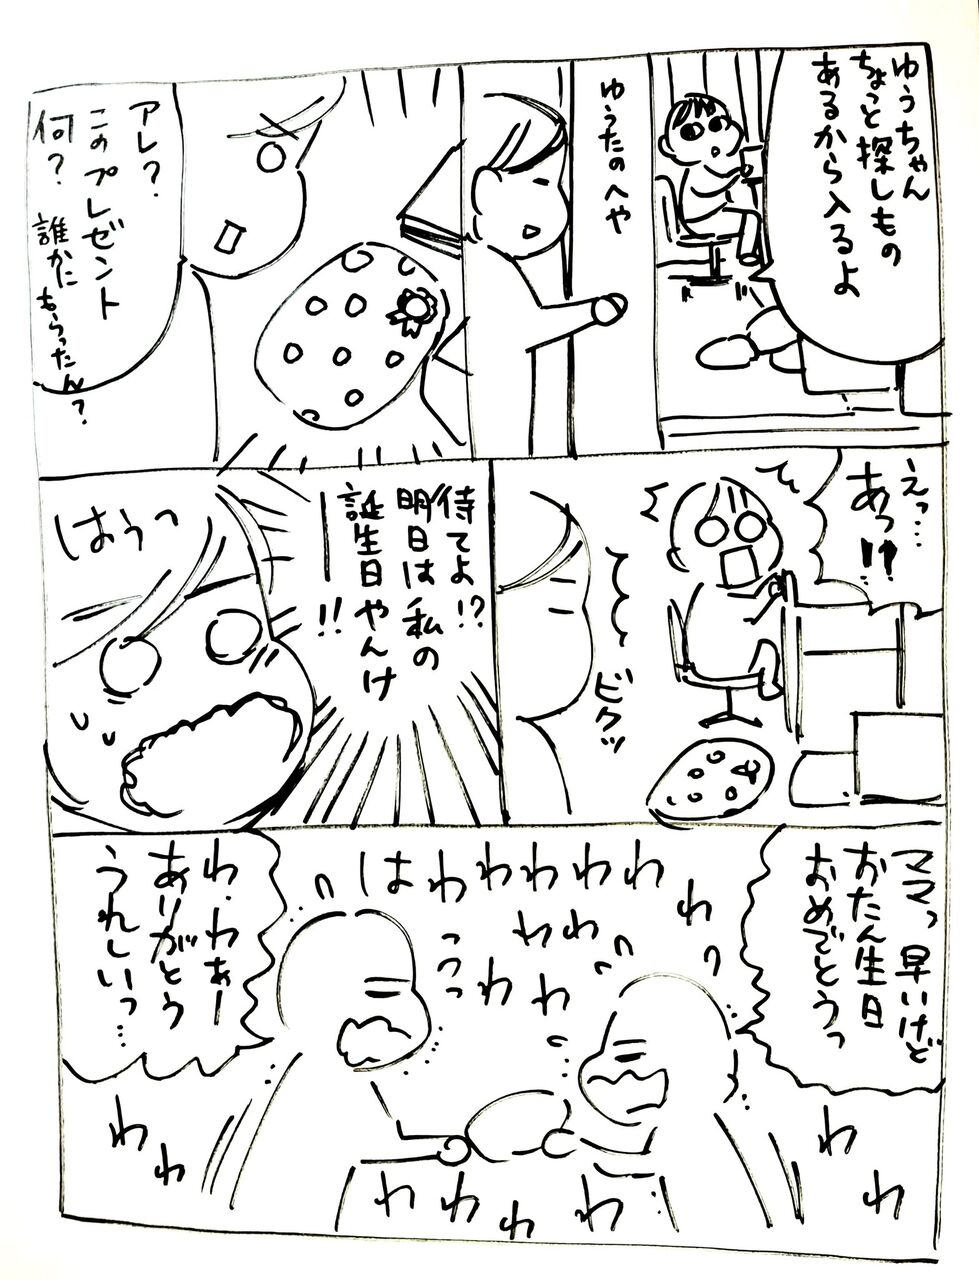 ゆうちゃん
ちょっと探しもの
あるから入るよ
ゆうたのへや
アレ?
このプレゼント
何? 誰かに もらったん?
えっ…
あっ!!
ビクッ
待てよ!?
明日は私の
誕生日やんけ
ー!!
はうっ
ママっ 早いけど
おたん生日
おめでとうっ
はわわわわわ
わわわ
わわ
わ
わ・わぁー
ありがとう
うれしいっ…
わ
わ
わ
わ
わ
わ
わ
わ
わ
わ